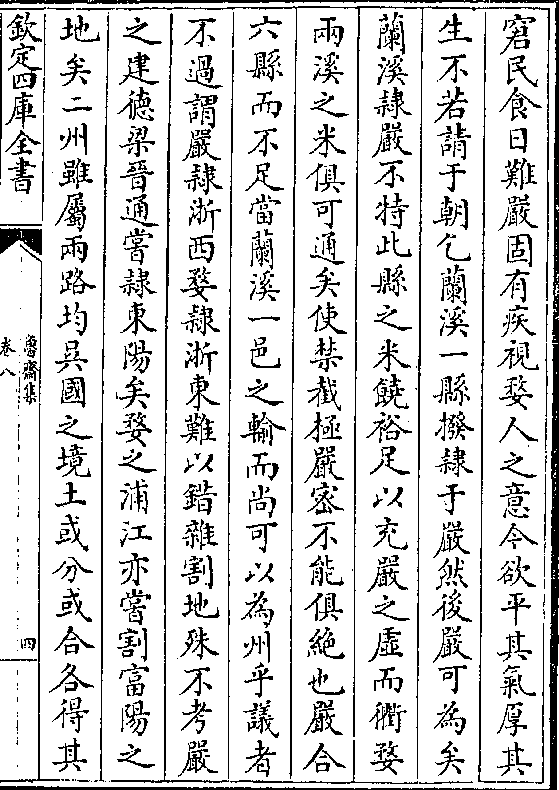 窘民食日難嚴固有疾視婺人之意今欲平其氣厚其
生不若請于朝乞蘭溪一縣撥隸于嚴然後嚴可為矣
蘭溪隸嚴不特此縣之米饒裕足以充嚴之虛而衢婺
兩溪之米俱可通矣使禁截極嚴宻不能俱絶也嚴合
六縣而不足當蘭溪一邑之輸而尚可以為州乎議者
不過謂嚴隸浙西婺隸浙東難以錯雜割地殊不考嚴
之建德梁晉通嘗隸東陽矣婺之浦江亦嘗割富陽之
地矣二州雖屬兩路均吳國之境土或分或合各得其
欽定四庫全書
魯齋集
卷八
四